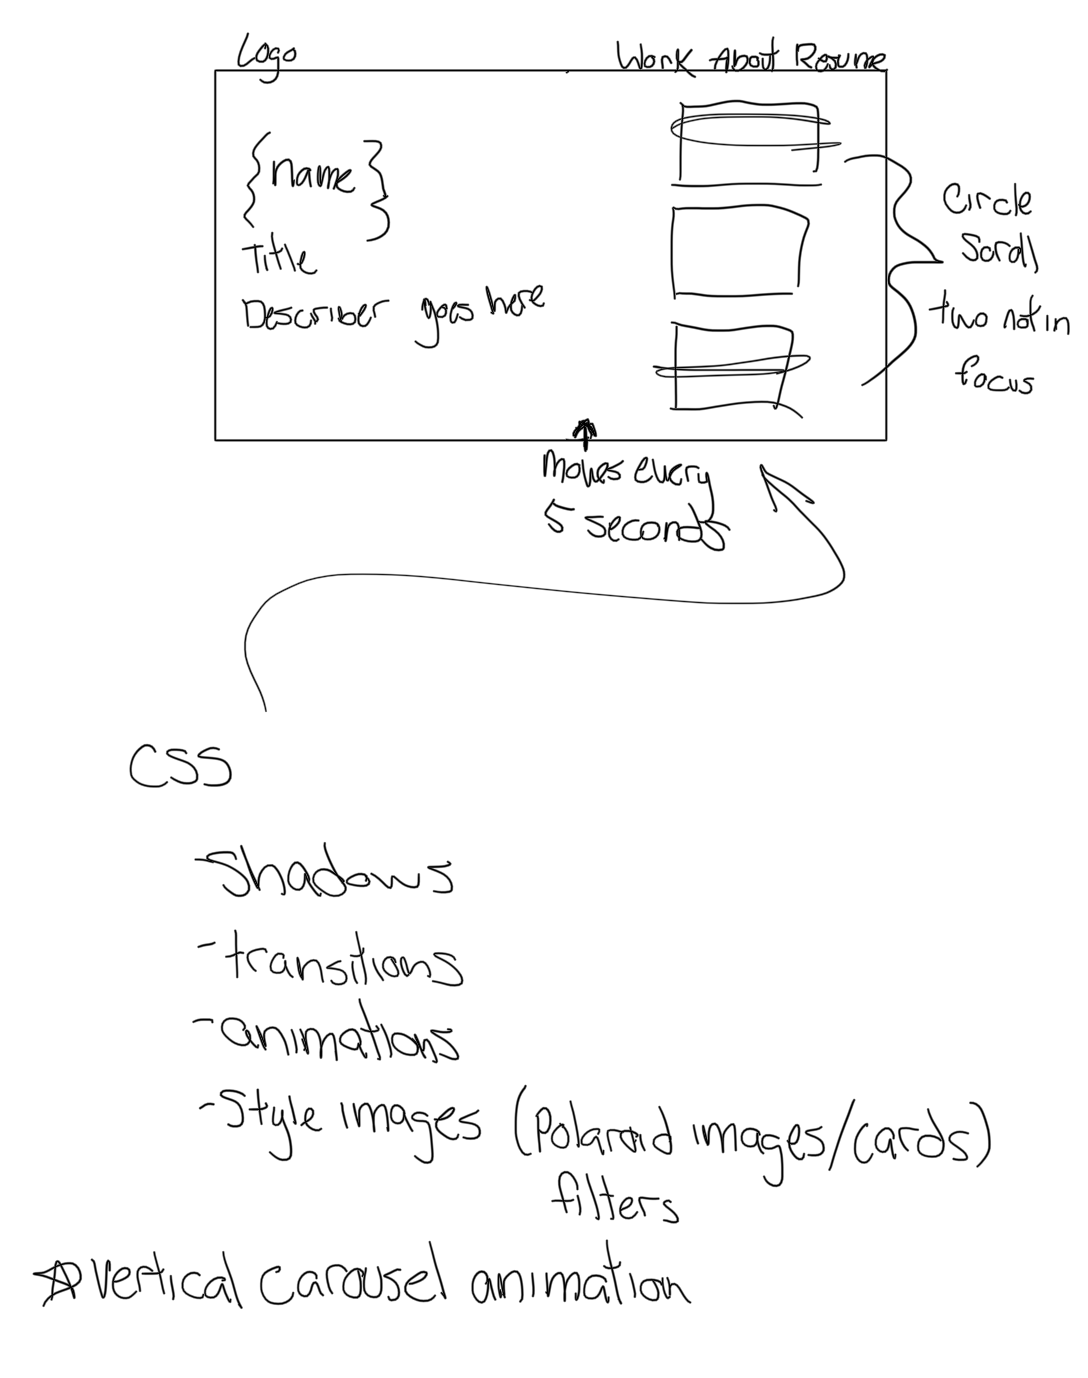 Logo
Work About Resume
{name}
Title
Describer goes here
Circle
Scroll
two not in
focus
Moves every
5 seconds
CSS
-Shadows
-transitions
-animations
-Style images (Polaroid images/cards)
filters
☆Vertical carousel animation